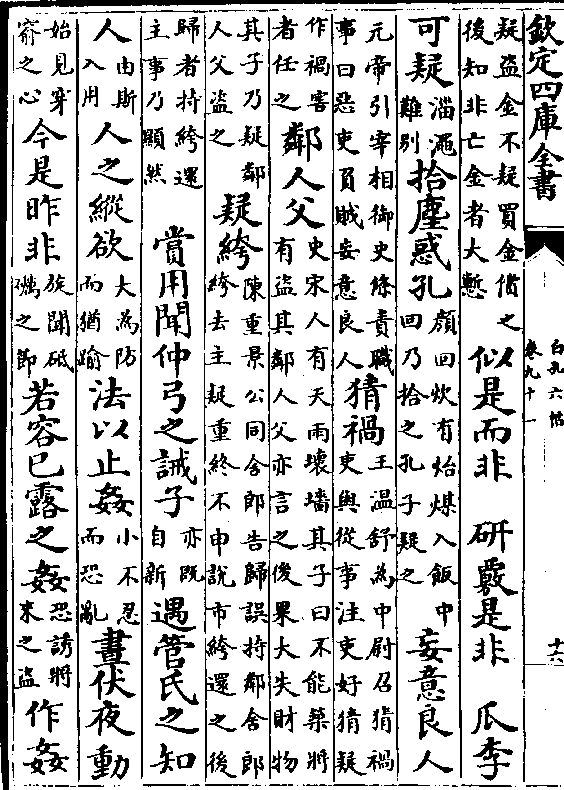 欽定四庫全書
白孔六帖
卷九十一
十六
疑盗金不疑買金償之後知非亡金者大慙 似是而非 研覈是非 瓜李
可疑淄澠難别 拾塵惑孔顔回炊有炲煤入飯中回乃拾之孔子疑之 妄意良人
元帝引宰相御史條責職事曰惡吏負賊妄意良人 猜禍王温舒為中尉召猜禍吏與從事注吏好猜疑
作禍害者任之 鄰人父史宋人有天雨壞墻其子曰不能築將有盗其鄰人父亦言之後果大失財物
其子乃疑鄰人父盗之 疑絝陳重景公同舍郎告歸誤持鄰舍郎絝去主疑重終不申說市絝還之後
歸者持絝還主事乃顯然 賞用聞仲弓之誡子亦既自新 遇管氏之知
人由斯入用 人之縱欲大為防而猶踰 法以止姦小不忍而恐亂 晝伏夜動
始見穿窬之心 今是昨非旋聞砥礪之節 若容已露之姦恐誘將來之盗 作姦